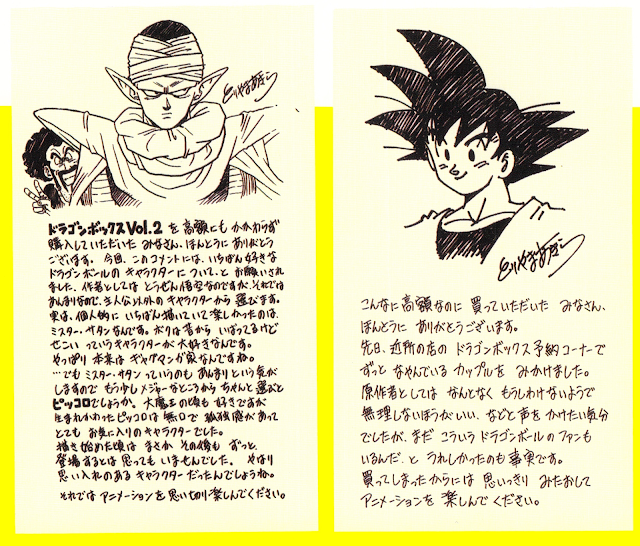 とりやまあきら
ドラゴンボックスVol.2 を 高額にも かかわらず
購入していただいた みなさん、ほんとうに ありがとう
ございます。 今回、このコメントには、いちばん好きな
ドラゴンボールの キャラクターに ついて、と お願いされ
ました。作者としては とうぜん 悟空なのですが、それでは
あんまりなので、主人公以外の キャラクターから 選びます。
実は、個人的に いちばん描いていて楽しかったのは、
ミスター・サタンなんです。ボクは昔から いばってるけど
せこい っていうキャラクターが大好きなんです。
やっぱり 本来は ギャグマンガ家なんですね。
…でも ミスター・サタンっていうのも あんまり という気が
しますので もう少しメジャーなところから ちゃんと 選ぶと
ピッコロでしょうか。大魔王の頃も 好きですが
生まれかわった ピッコロは 無口で 孤独感があって
とても お気に入りのキャラクターでした。
描き始めた頃は まさか その後も ずっと、
登場するとは 思っても いませんでした。 やはり
思い入れのある キャラクターだったんでしょうね。
それでは アニメーションを思い切り楽しんでください。
とりやまあきら
こんなに 高額なのに 買っていただいた みなさん、
ほんとうに ありがとうございます。
先日、近所の店の ドラゴンボックス予約コーナーで
ずっと なやんでいる カップルを みかけました。
原作者としては なんとなく もうしわけないようで
無理しないほうがいい、などと声を かけたい気分
でしたが、まだ こういう ドラゴンボールの ファンも
いるんだ、と うれしかったのも 事実です。
買ってしまったからには 思いっきり みたおして
アニメーションを 楽しんでください。